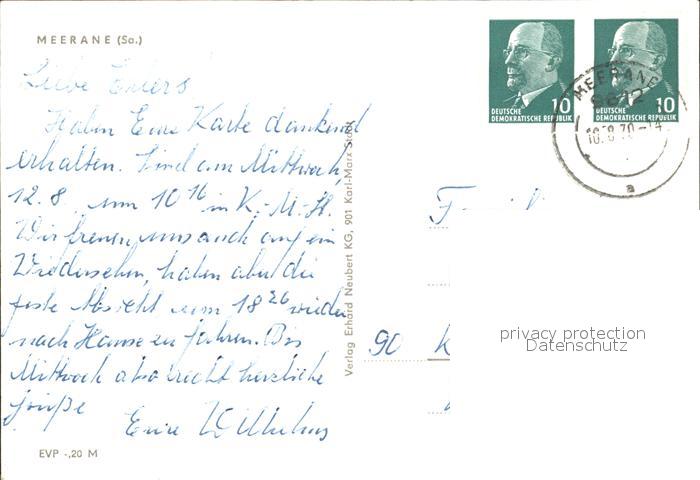 MEERANE (Sa.)
Liebe Ehlers
Haben Eure Karte dankend
erhalten. Sind am Mittwoch,
12.8. um 10 16 in K.-M.-St.
Wir freuen uns auch auf ein
Wiedersehen, haben aber die
feste Absicht um 18 26 wieder
nach Hause zu fahren. Bis
Mittwoch also recht herzliche
Grüße
Eure Wilhelms
EVP -,20 M
Verlag Erhard Neubert KG, 901 Karl-Marx-Stadt
10
DEUTSCHE
DEMOKRATISCHE REPUBLIK
10
DEUTSCHE
DEMOKRATISCHE REPUBLIK
MEERANE
8612
10.8.70-14
a
F
90 K
privacy protection
Datenschutz